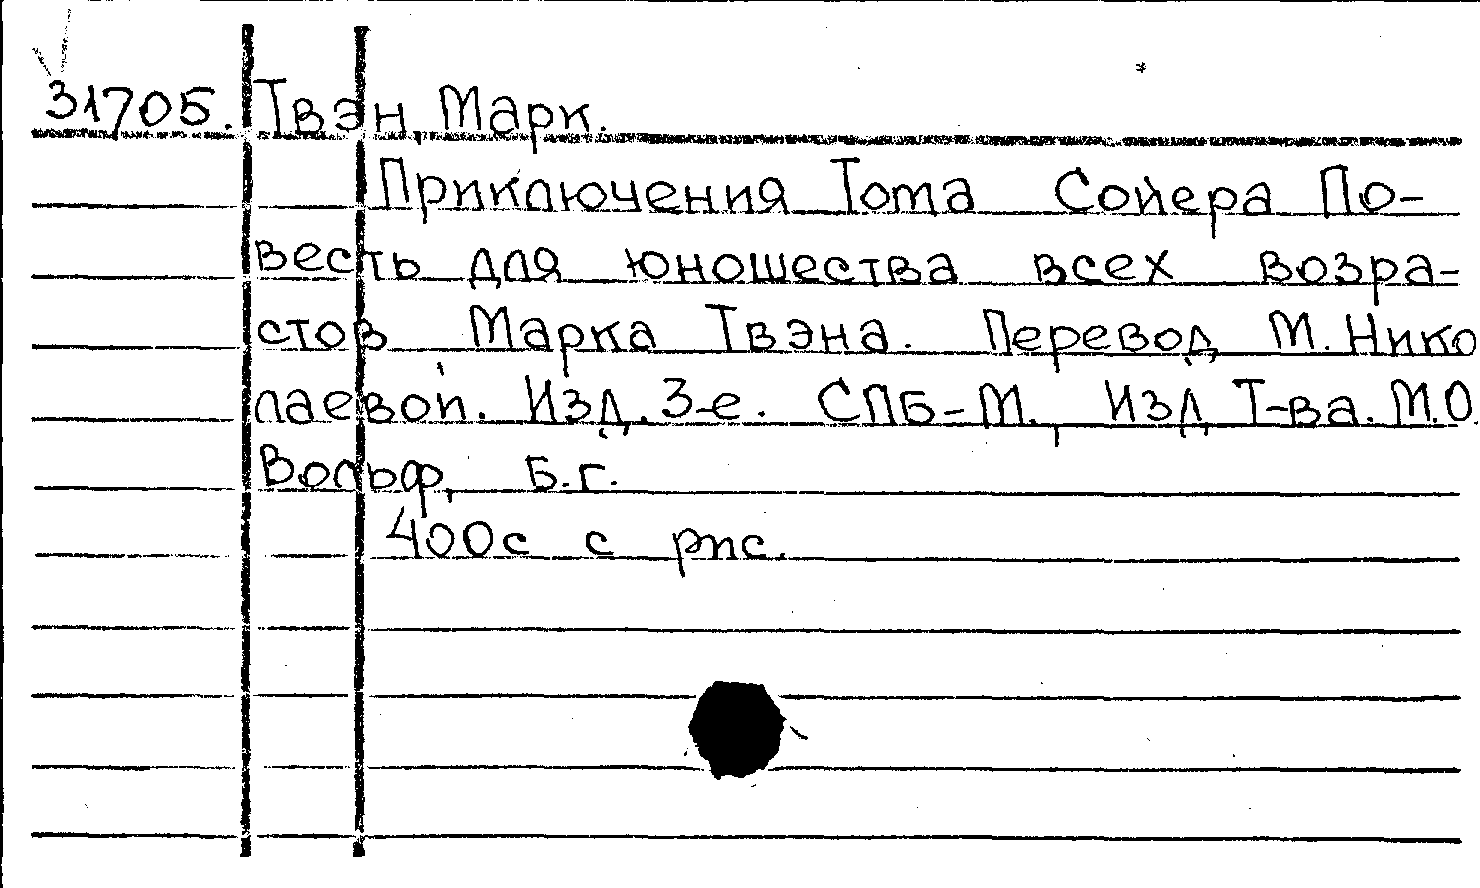 31705. Твэн, Марк.
Приключения Тома Сойера По-
весть для юношества всех возра-
стов Марка Твэна. Перевод М. Нико
лаевой. Изд. 3-е. СПБ-М., Изд Т-ва. М.О.
Вольф, Б.г.
400с с рис.